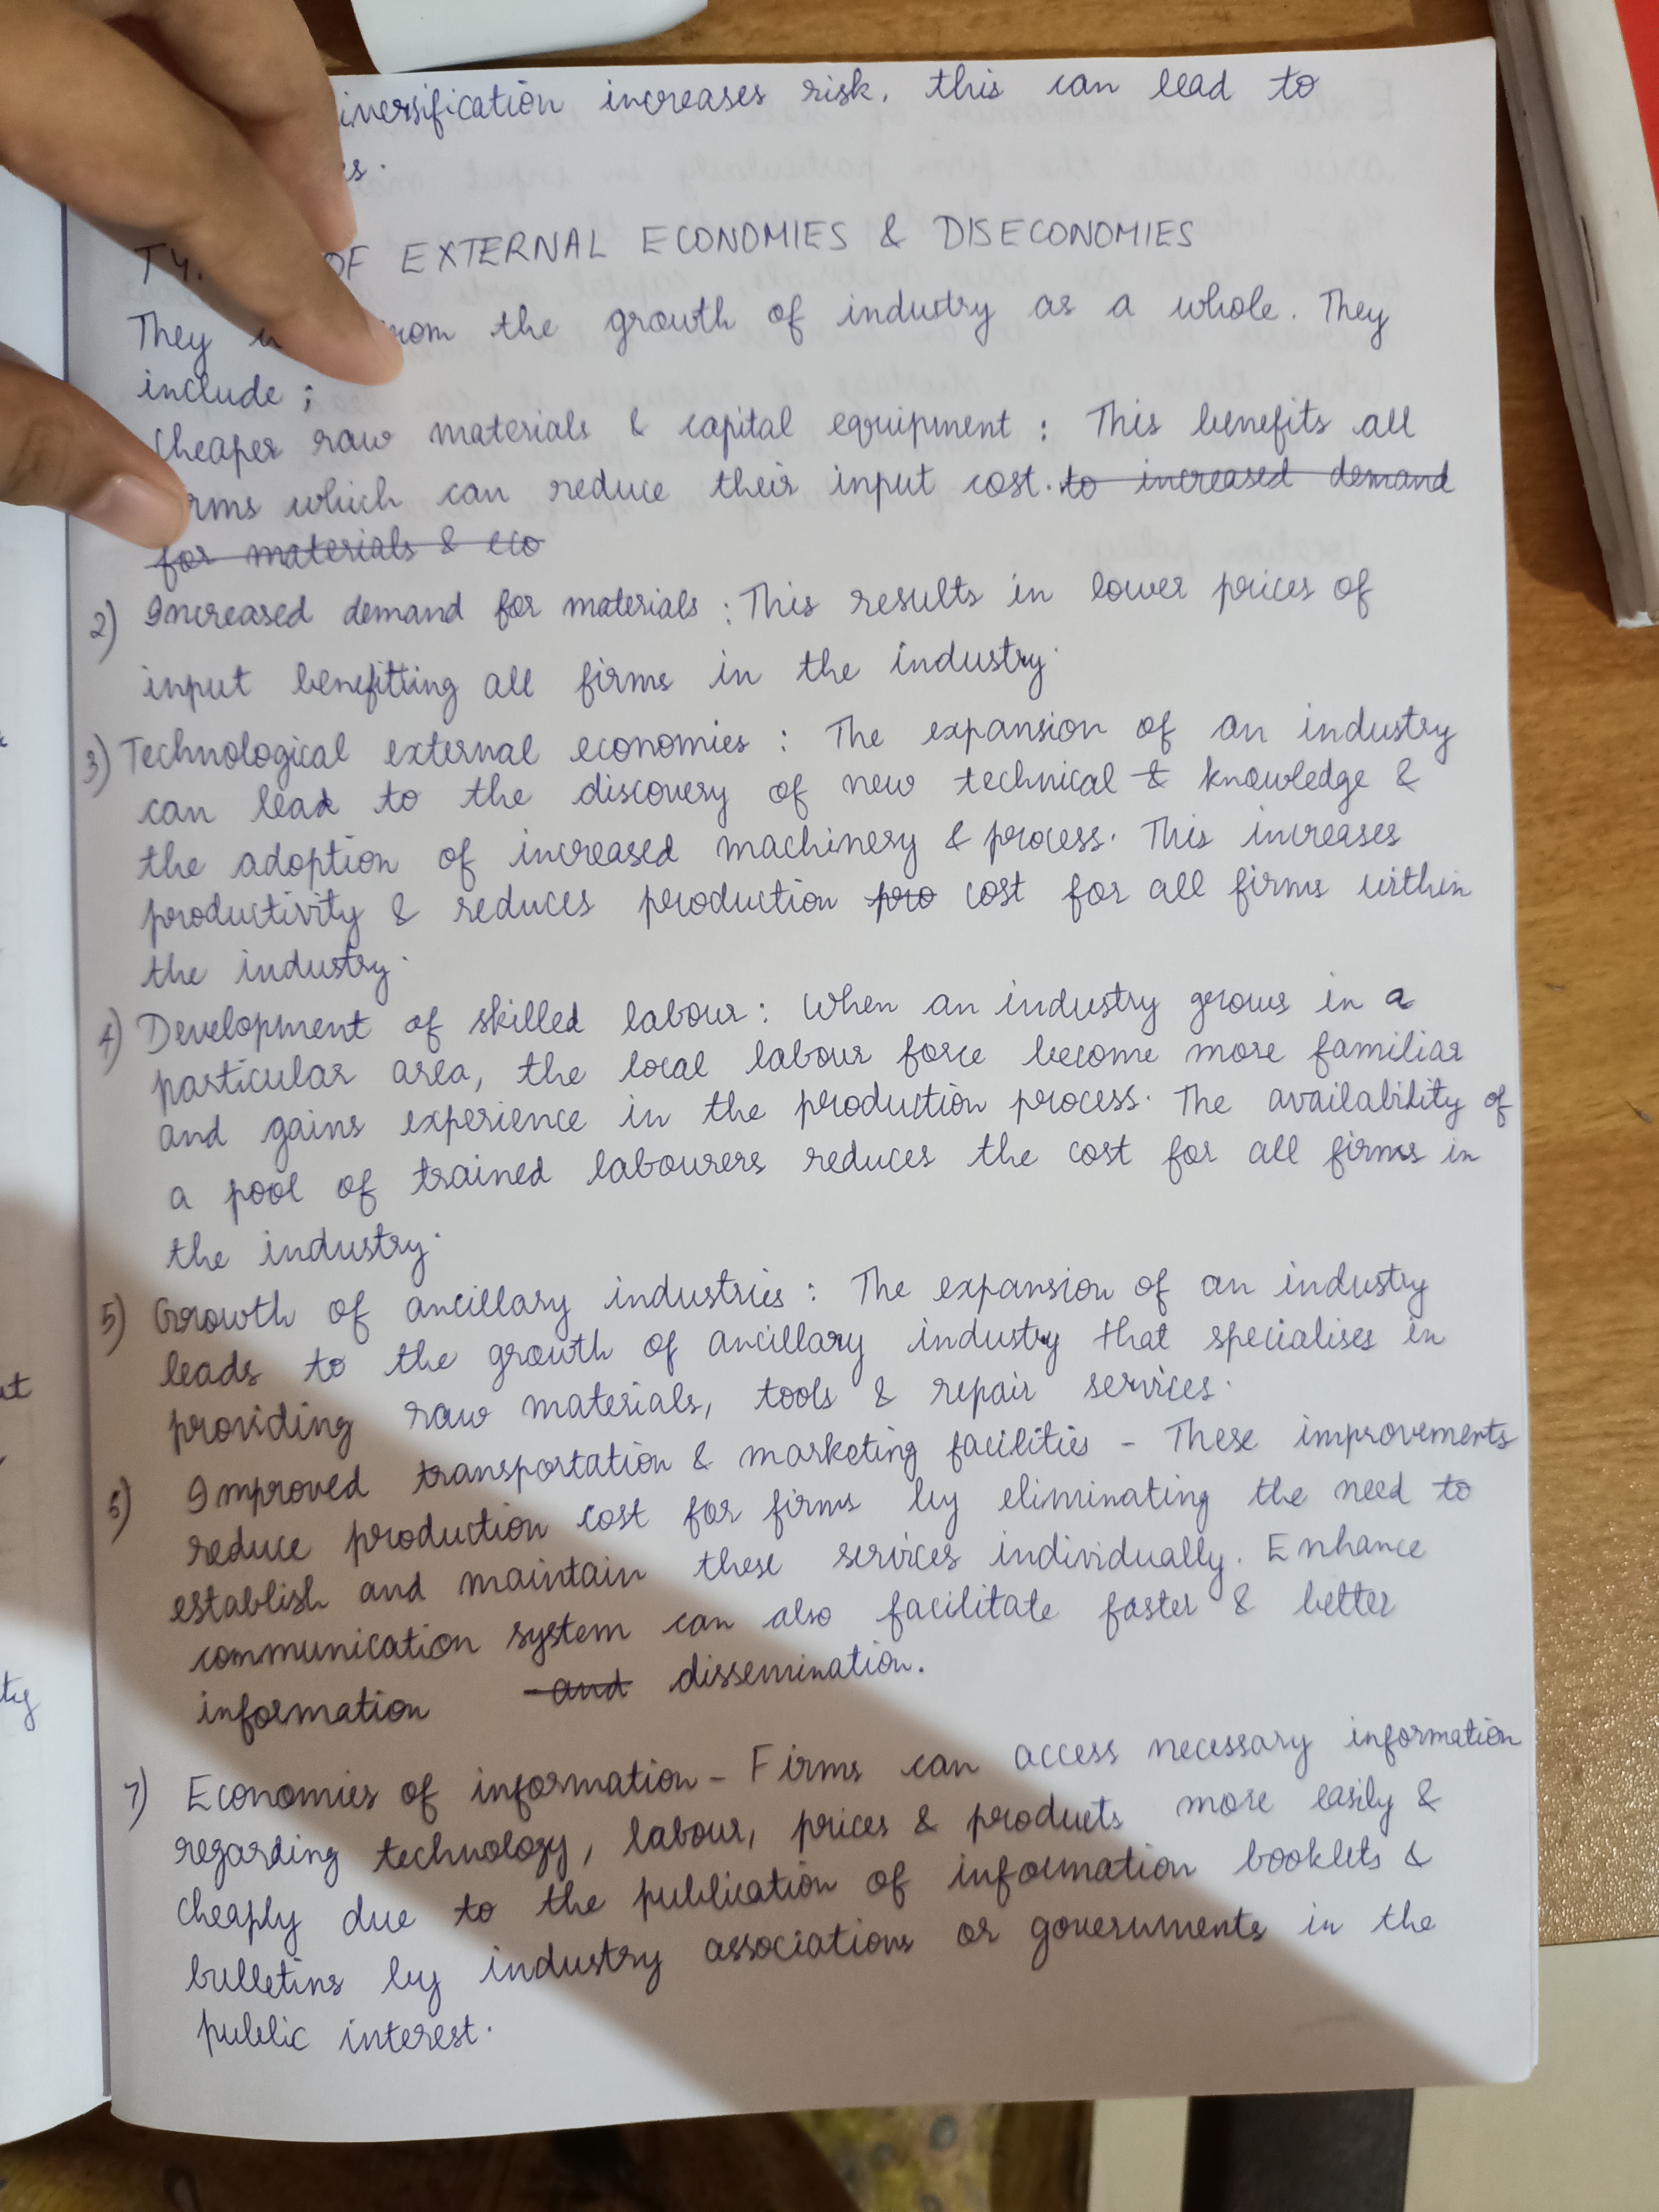 iversification increases risk. this can lead to
es.
OF EXTERNAL ECONOMIES & DISECONOMIES
They from the growth of industry as a whole. They
include ;
Cheaper raw materials & capital equipment : This benefits all
rms which can reduce their input cost. to increased demand
for materials & eco
2) Increased demand for materials : This results in lower prices of
input benefitting all firms in the industry.
3) Technological external economies : The expansion of an industry
can lead to the discovery of new technical & knowledge &
the adoption of increased machinery & process. This increases
productivity & reduces production pro cost for all firms within
the industry.
4) Development of skilled labour : When an industry grows in a
particular area, the local labour force become more familiar
and gains experience in the production process. The availability of
a pool of trained labourers reduces the cost for all firms in
the industry.
5) Growth of ancillary industries : The expansion of an industry
leads to the growth of ancillary industry that specialises in
providing raw materials, tools & repair services.
6) Improved transportation & marketing facilities - These improvements
reduce production cost for firms by eliminating the need to
establish and maintain these services individually. Enhance
communication system can also facilitate faster & better
information and dissemination.
7) Economies of information - Firms can access necessary information
regarding technology, labour, prices & products more easily &
cheaply due to the publication of information booklets &
bulletins by industry associations or governments in the
public interest.